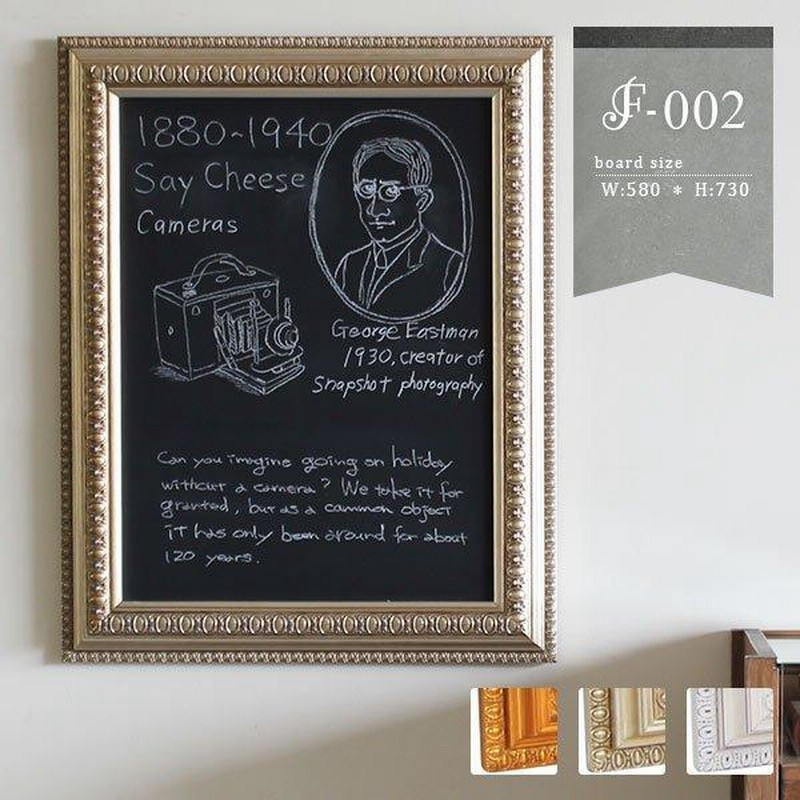 1880~1940
Say Cheese
Cameras
George Eastman
1930, creator of
Snapshot photography
Can you imagine going on holiday
without a camera? We take it for
granted, but as a common object
it has only been around for about
120 years.
F-002
board size
W:580 * H:730